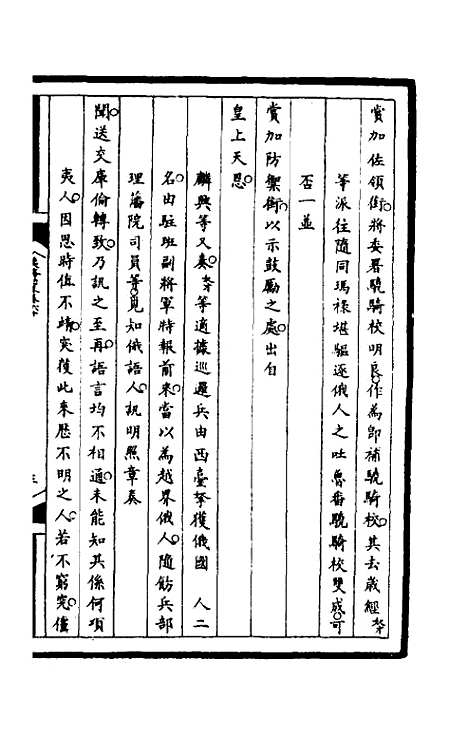 賞加佐領銜將委署驍騎校明良作為卽補驍騎校其去歲經奴才
等派往隨同瑪祿堪驅逐俄人之吐魯番驍騎校雙成可
否一並
賞加防禦銜以示鼓勵之處出自
皇上天恩
麟興等又奏奴才等適據巡邏兵由西臺拏獲俄國 人二
名由駐班副將軍特報前來當以為越界俄人隨飭兵部
理藩院司員等覓知俄語人訊明照章奏
聞送交庫倫轉致乃訊之至再語言均不相通未能知其係何項
夷人因思時值不靖突獲此來歷不明之人若不窮究僅